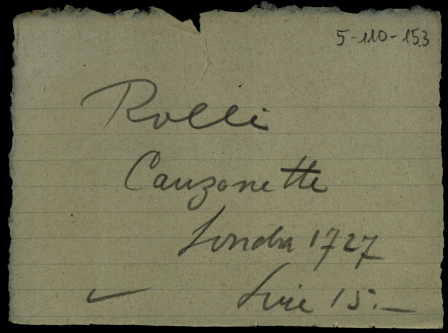 5-110-153
Rolli
Canzonette
Londra 1727
Lire 15.—